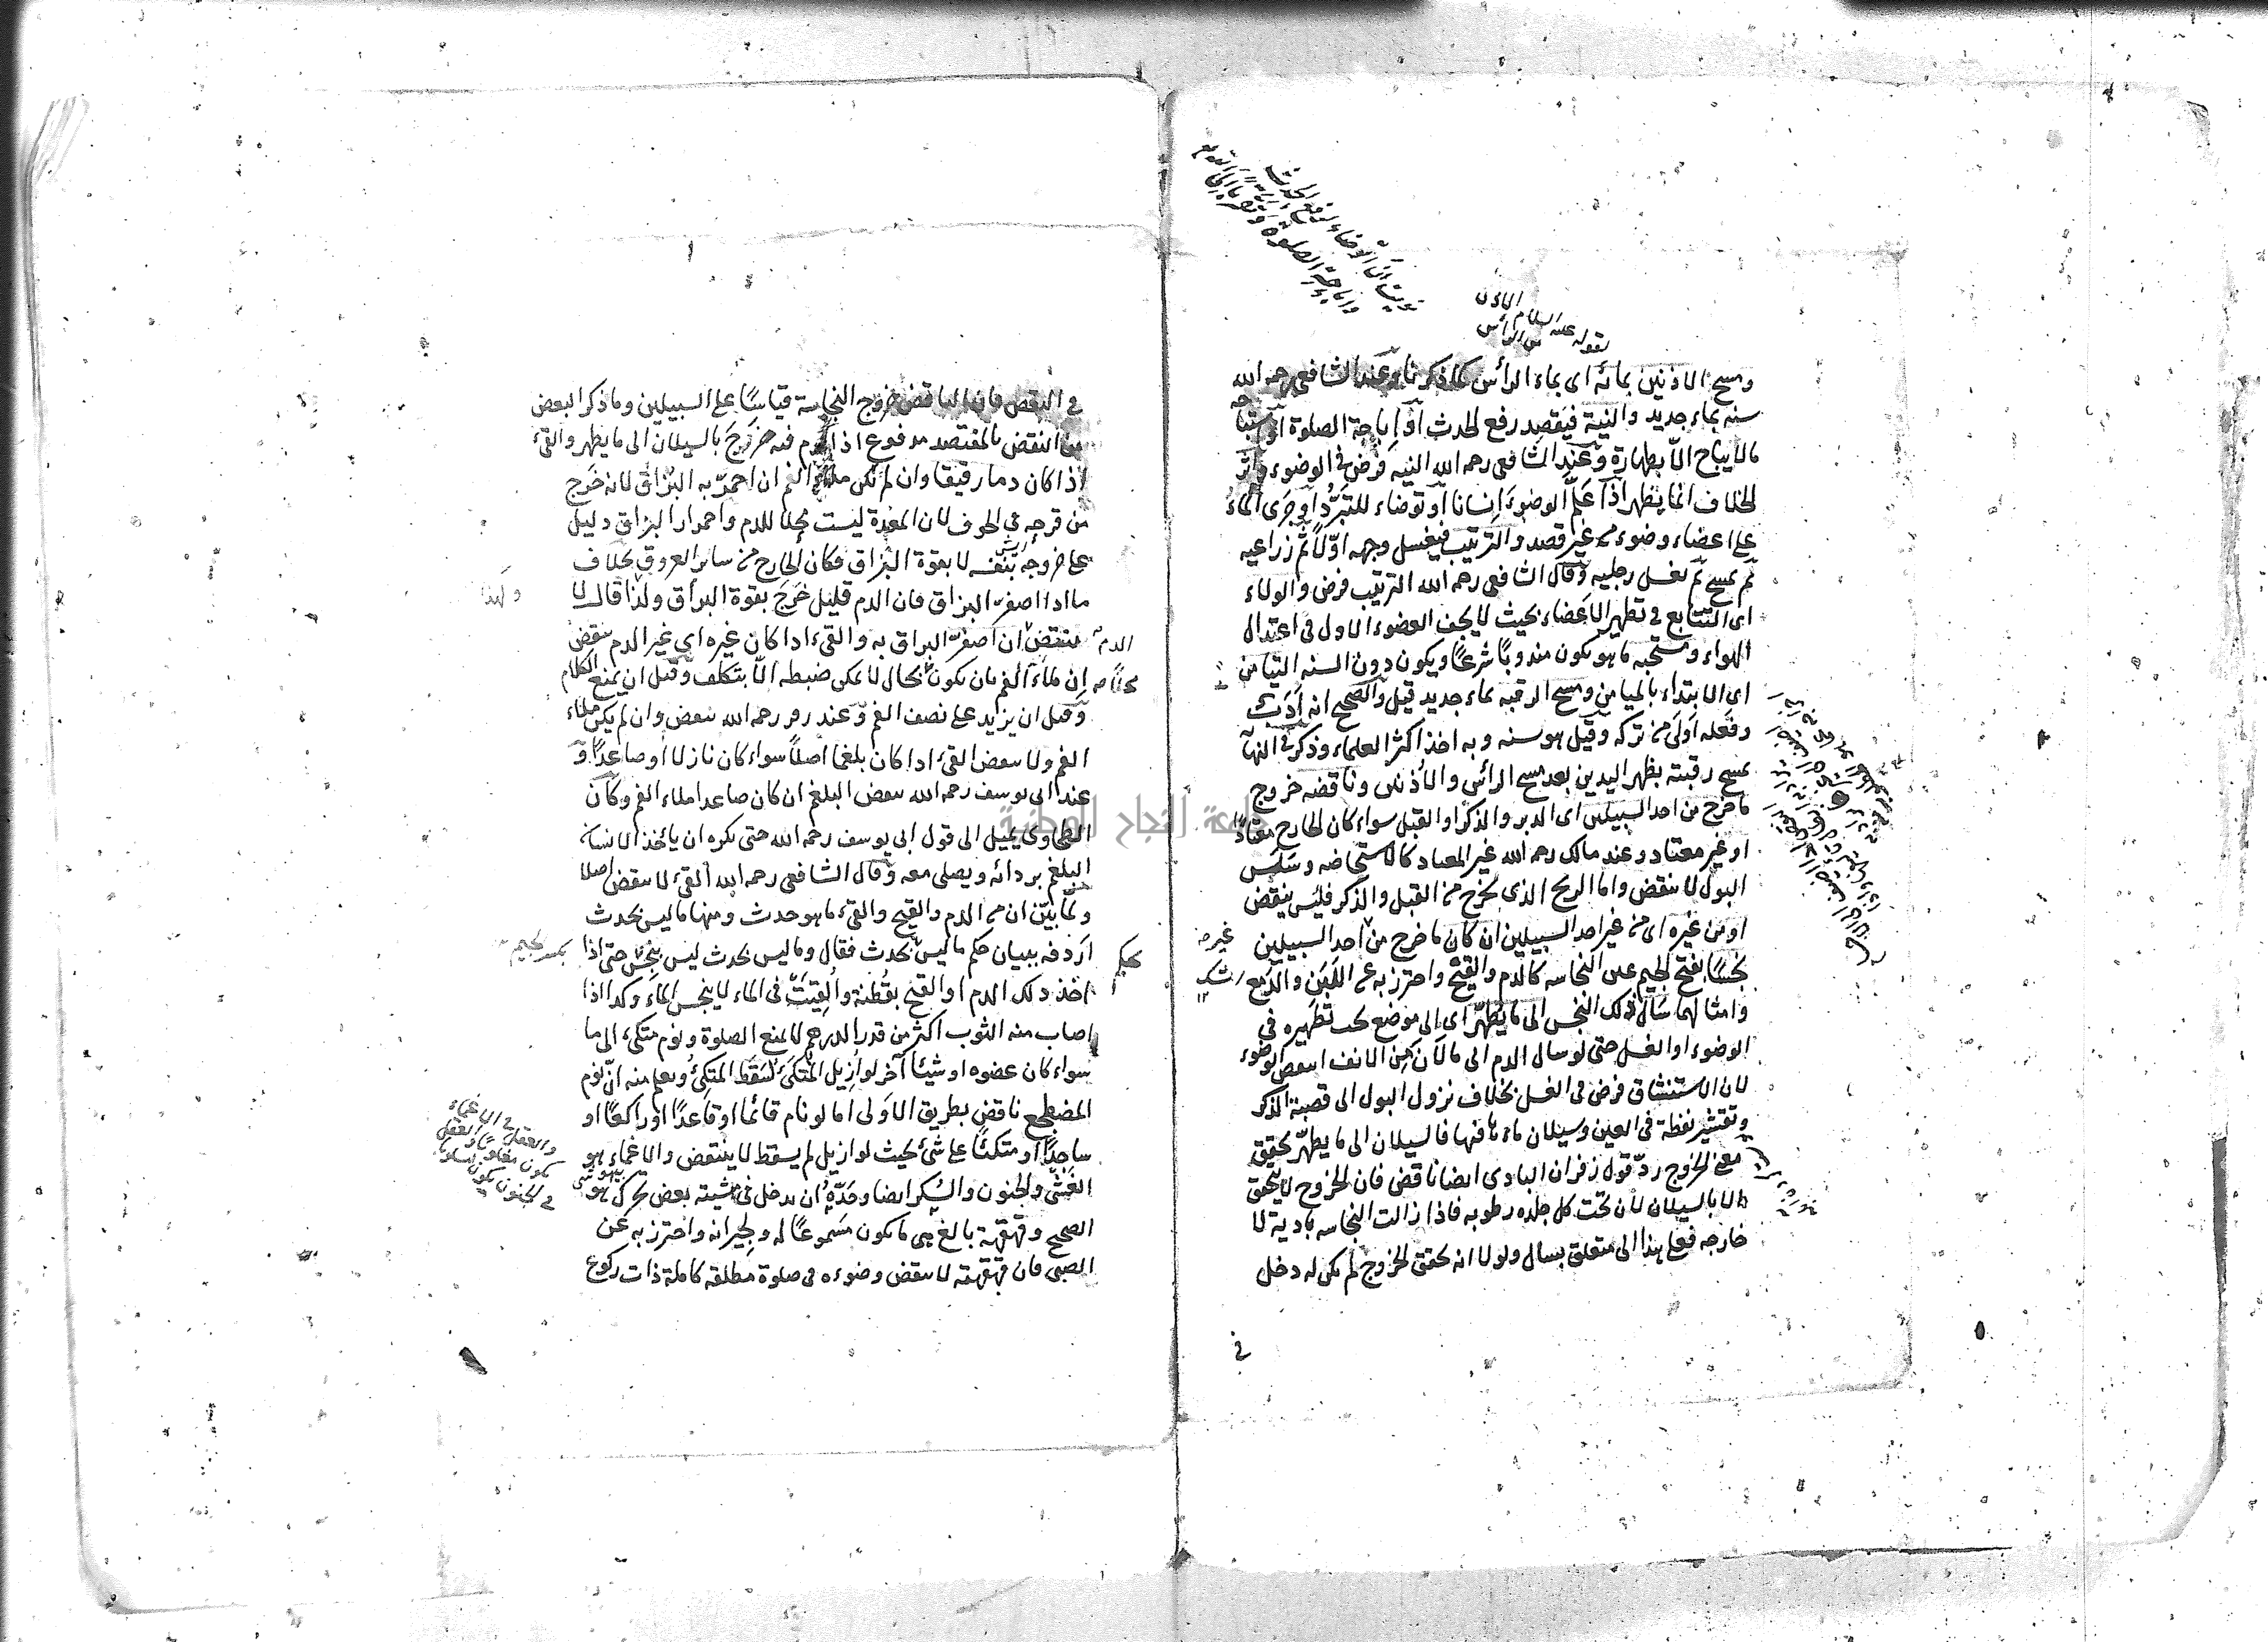 لقوله عليه السلام الاذنان
من الرأس
ومسح الاذنين بمائه اى بماء الرأس كما ذكرنا وعند الشافعى رحمه الله
سنه بماء جديد والنية فيقصد رفع الحدث أو إباحة الصلوة أو
مالا يباح الاّ بطهارة وعند الشافعى رحمه الله النيه فرض فى الوضوء واثر
الخلاف انما يظهر اذا علّم الوضوءَ إنسانا أو توضاء للتبرّد أو جرَى الماءُ
على اعضاء وضوءه من غير قصد والترتيب فيغسل وجهه اوّلاً ثم زراعيه
ثم يمسح ثم يغسل رجليه وقال الشافعى رحمه الله الترتيب فرض والولاء
اى التتابع فى تطهير الاعضاء بحيث لا يجف العضوء الاول فى اعتدال
الهواء ومستحبه ما هو يكون مندوبًا شرعًا ويكون دون السنه التيامن
اى الابتداء بالميامن ومسح الرقبه بماء جديد قيل والصحيح انه أدَبٌ
وفعله أولَى من تركه وقيل هو سنه وبه اخذ اكثر العلماء وذكر فى
يمسح رقبته بظهر اليدين بعد مسح الرأس والأذنين وناقضه خروج
ما خرج من احد السبيلين اى الدبر والذكر او القبل سواء كان الخارج معتادًا
او غير معتاد وعند مالك رحمه الله غير المعتاد كالاستحاضه وسَلَس
البول لا ينقض واما الريح الذى يخرج من القبل والذكر فليس ينقض
او من غيره اى من غير احد السبيلين ان كان ما خرج من احد السبيلين
نجسًا بفتح الجيم عين النجاسه كالدم والقيح واحترز به عن اللبَن والدّمع
وامثالهما سَال ذلك النجس الى ما يطهّر اى الى موضع يجب تطهيره فى
الوضوء او الغسل حتى لو سال الدم الى ما لانَ مِن الانف انتقض الوضوء
لان الاستنشاق فرض فى الغسل بخلاف نزول البول الى قصبة الذكر
وتقشير نفطة فى العين وسيلان ماءها فيها فالسيلان الى ما يطهّر تحقيق
معنى الخروج ردّ قول زفر ان البادى ايضا ناقض فان الخروج لا يتحقق
الا بالسيلان لأن تحت كل جلده رطوبه فاذا زالت النجاسه بادية لا
خارجه فعلى هذا الى متعلق بسال ولولا انه تحقق الخروج لم يكن له دخل
فى
فى النقض فان الناقض خروج النجاسة قياسًا على السبيلين وما ذكر البعض
من النقض بالمفتصد مدفوع اذ الدم فيه خرَجَ بالسيلان الى ما يطهر والقئ
اذا كان دما رقيقا وان لم يكن ملاء الفم ان احمرّ به البزاق لانه خرج
من قرحه فى الجوف لان المعدة ليست محلا للدم واحمرار البزاق دليل
على خروجه بنفسه لا بقوة البزاق فكان الخارج من سائر العروق بخلاف
ما اذا اصفرّ البزاق فان الدم قليل خرَجَ بقوة البزاق ولذا قال لا
ينقض ان اصفرّ البزاق به والقئ اذا كان غيره اى غير الدم ينقض
إن ملاء الفم بان يكون بحال لا يمكن ضبطه الاّ بتكلف وقيل ان يمنع الكلام
وقيل ان يزايد على نصف الفم وعند زفر رحمه الله ينقض وان لم يكن ملاء
الفم ولا ينقض القئ اذا كان بلغما اصلاً سواء كان نازلا او صاعدًا و
عند ابى يوسف رحمه الله ينقض البلغم ان كان صاعدا ملاء الفم وكان
الطحاوى يميل الى قول ابى يوسف رحمه الله حتى يكره ان يأخذ الانسان
البلغم بردائه ويصلى معه وقال الشافعى رحمه الله القئ لا ينقض اصلا
ولمّا بيّن ان من الدم والقيح والقئ ما هو حدث ومنها ما ليس بحدث
ارَدفه ببيان حكم ما ليس بحدث فقال وما ليس بحدث ليس بنجِسٌ حتى اذا
اخذ ذلك الدم او القيح بقُطنة وألقِيَت فى الماء لا ينجس الماء وكذا اذا
اصاب منه الثوب اكثر من قدر الدرهم لا يمنع الصلوة ونوم متكئ الى ما
سواء كان عضوه او شيئًا آخر لو أُزيل المتكَئُ لسَقط المتكِئُ ويعلم منه انّ نوم
المضطجع ناقض بطريق الأولى اما لو نام قائما او قاعدًا او راكعًا او
ساجدًا او متكئًا على شئ بحيث لو ازيل لم يسقط لا ينتقض والاغماء هو
الغَشى والجنون والسُكر ايضا وحَدّهُ ان يدخل فى مشيته بعض تحرك هو
الصحيح وقهقهة بالغ هى ما يكون مسَموعًا له ولجِيرانه واحترز به عن
الصبى فان قهقهته لا ينقض وضوءه فى صلوة مطلقه كاملة ذات ركوع
جامعة النجاح الوطنية